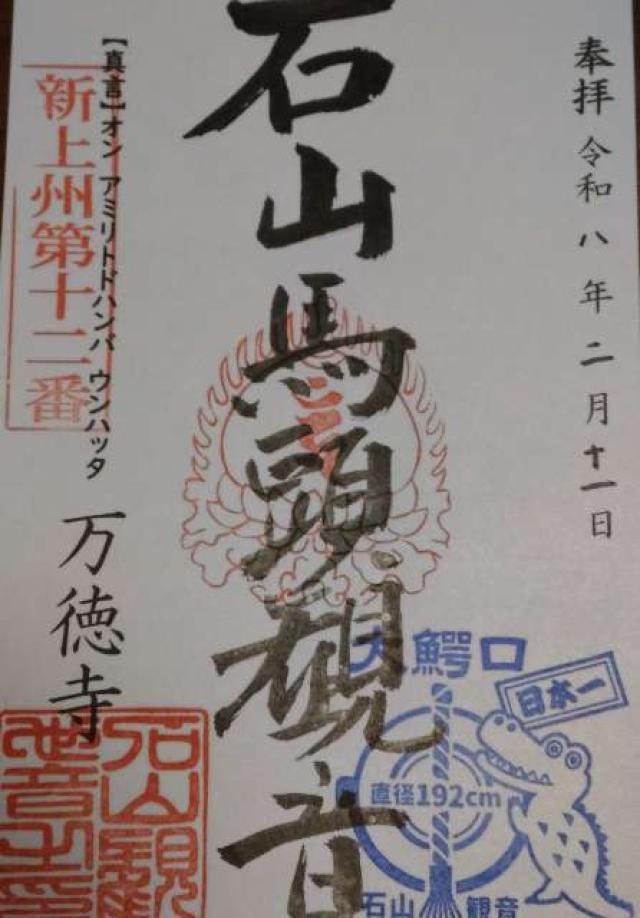 奉拝 令和八年二月十一日
石山馬頭観音
【真言】オン アミリトドハンバ ウンハッタ
新上州第十二番
万徳寺
大鰐口
日本一
直径192cm
石山観音